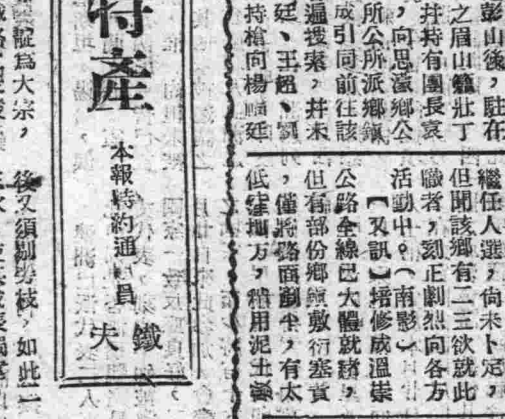 彭山後，駐在
之眉山籲壯丁
幷持有團長袁
，向思濛鄉公
所公所派鄉鎮
成引同前往該
遍搜索，幷未
廷、王超、
持槍向楊廷
繼任人選，尙未卜定，
但聞該鄉有二三欲就此
職者，刻正劇烈向各方
活動中。（南影）
【又訊】培修成溫崇
公路全線已大體就緒，
但有部份鄉鎮敷衍塞責
，僅將路面劃平，有太
低窪地方，稍用泥土
特產
本報特約通員
鐵夫
靛為大宗，
後又須剔旁枝，如此二